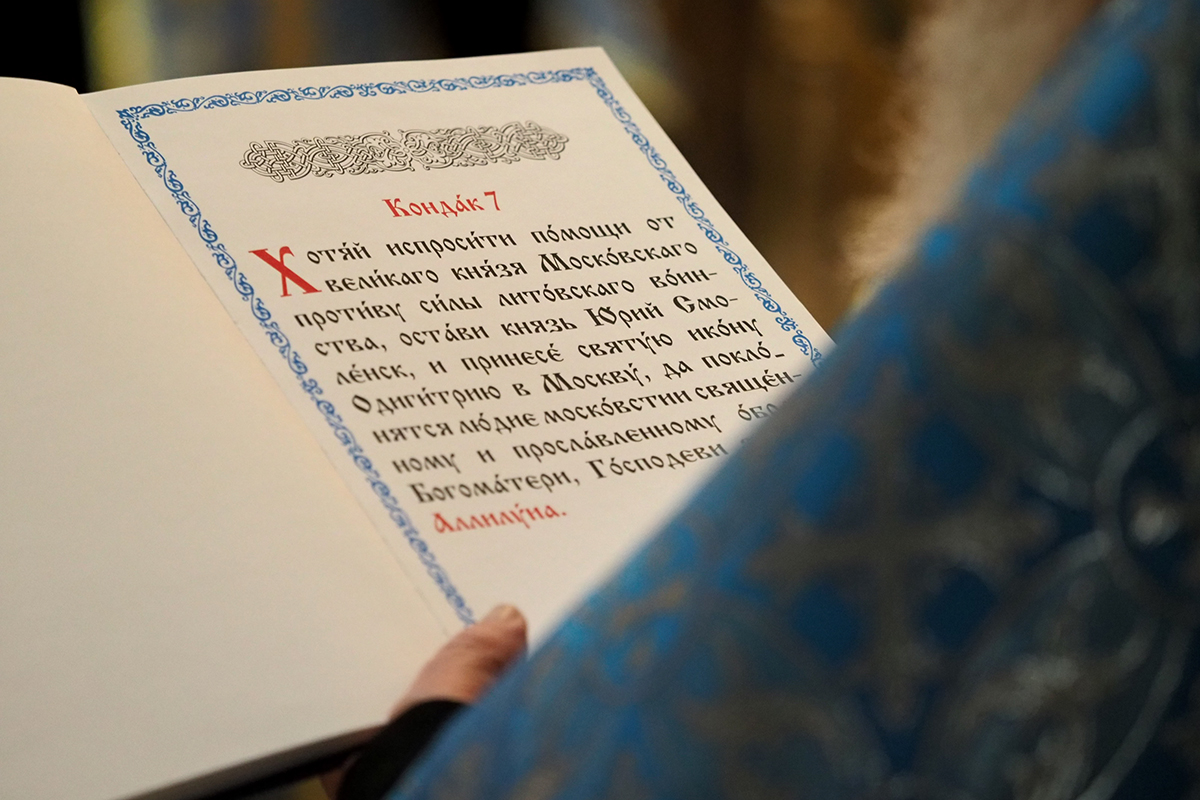 Конда́к 7
Хотя́й испроси́ти по́мощи от
вели́каго кня́зя Моско́вскаго
проти́ву си́лы лито́вскаго во́ин-
ства, оста́ви князь Ю́рий Смо-
ле́нск, и принесе́ святу́ю ико́ну
Одиги́трию в Москву́, да покло́-
нятся лю́дие моско́встии свяще́н-
ному и просла́вленному
Богома́тери, Го́сподеви
Аллилу́иа.